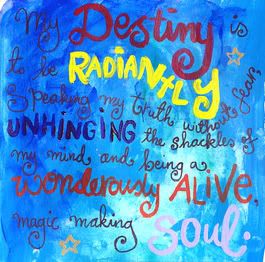 My Destiny is
to be RADIANTLY
Speaking my truth without fear,
UNHINGING the shackles of
my mind and being a
wonderously ALiVE,
magic making soul.